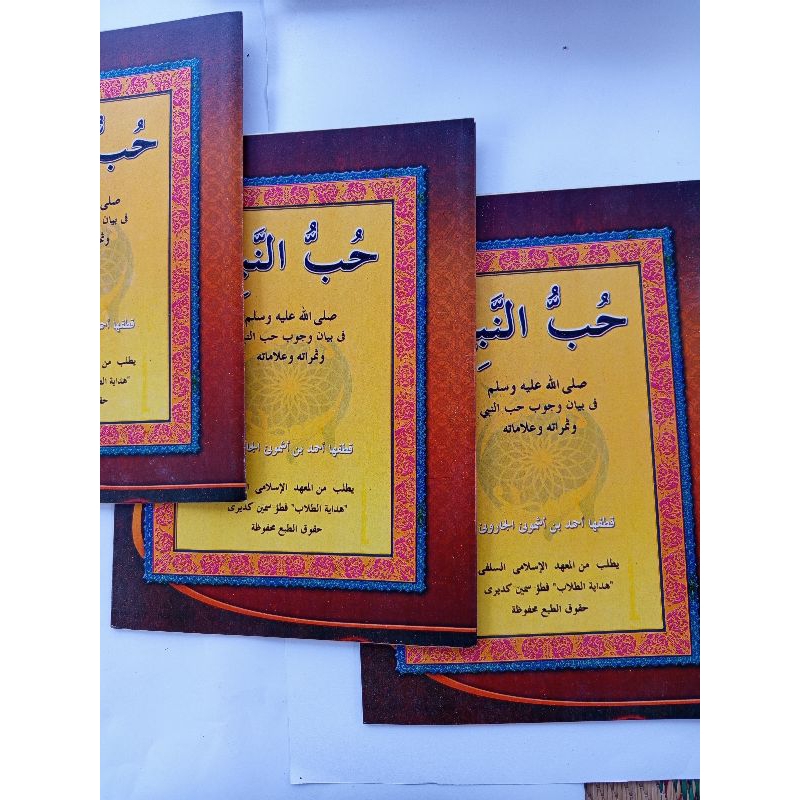 حُبُّ
فى بيان
قطفها
يطلب من
حُبُّ النَّبِي
صلى الله عليه وسلم
فى بيان وجوب حب
وثمراته وعلاماته
قطفها أحمد بن أشمونى
يطلب من المعهد الإسلامى
"هداية الطلاب" فطؤ سمين كديرى
حقوق الطبع محفوظة
حُبُّ النَّبِي
صلى الله عليه وسلم
فى بيان وجوب حب النبي
وثمراته وعلاماته
قطفها أحمد بن أشمونى الجارونى
يطلب من المعهد الإسلامى السلفى
"هداية الطلاب" فطؤ سمين كديرى
حقوق الطبع محفوظة